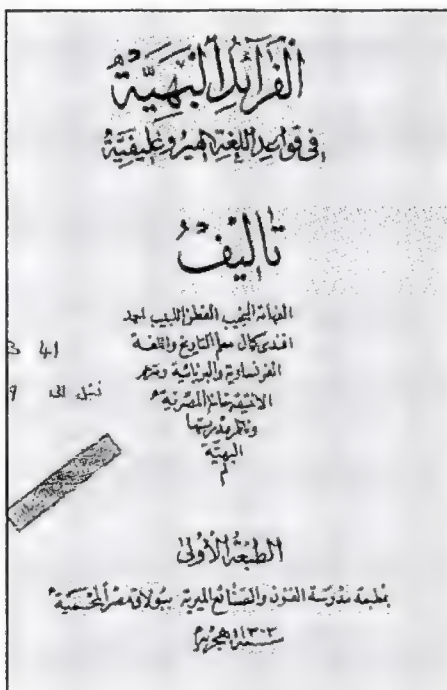 الفَرَائِدُ البَهِيَّةُ
فِي قَوَاعِدِ اللُّغَةِ الهِيرُوغْلِيفِيَّةِ
تَألِيفُ
الفهامة النجيب الفطن اللبيب احمد
افندى كمال معلم التاريخ واللغة
الفرنساوية والبربائية ومترجم
الانتيقه خانه المصرية
وناظر مدرستها
البهية
م
الطبعة الأولى
بمطبعة مدرسة الفنون والصنائع الميرية ببولاق مصر المحمية
سنة ١٣٠٣ هجرية